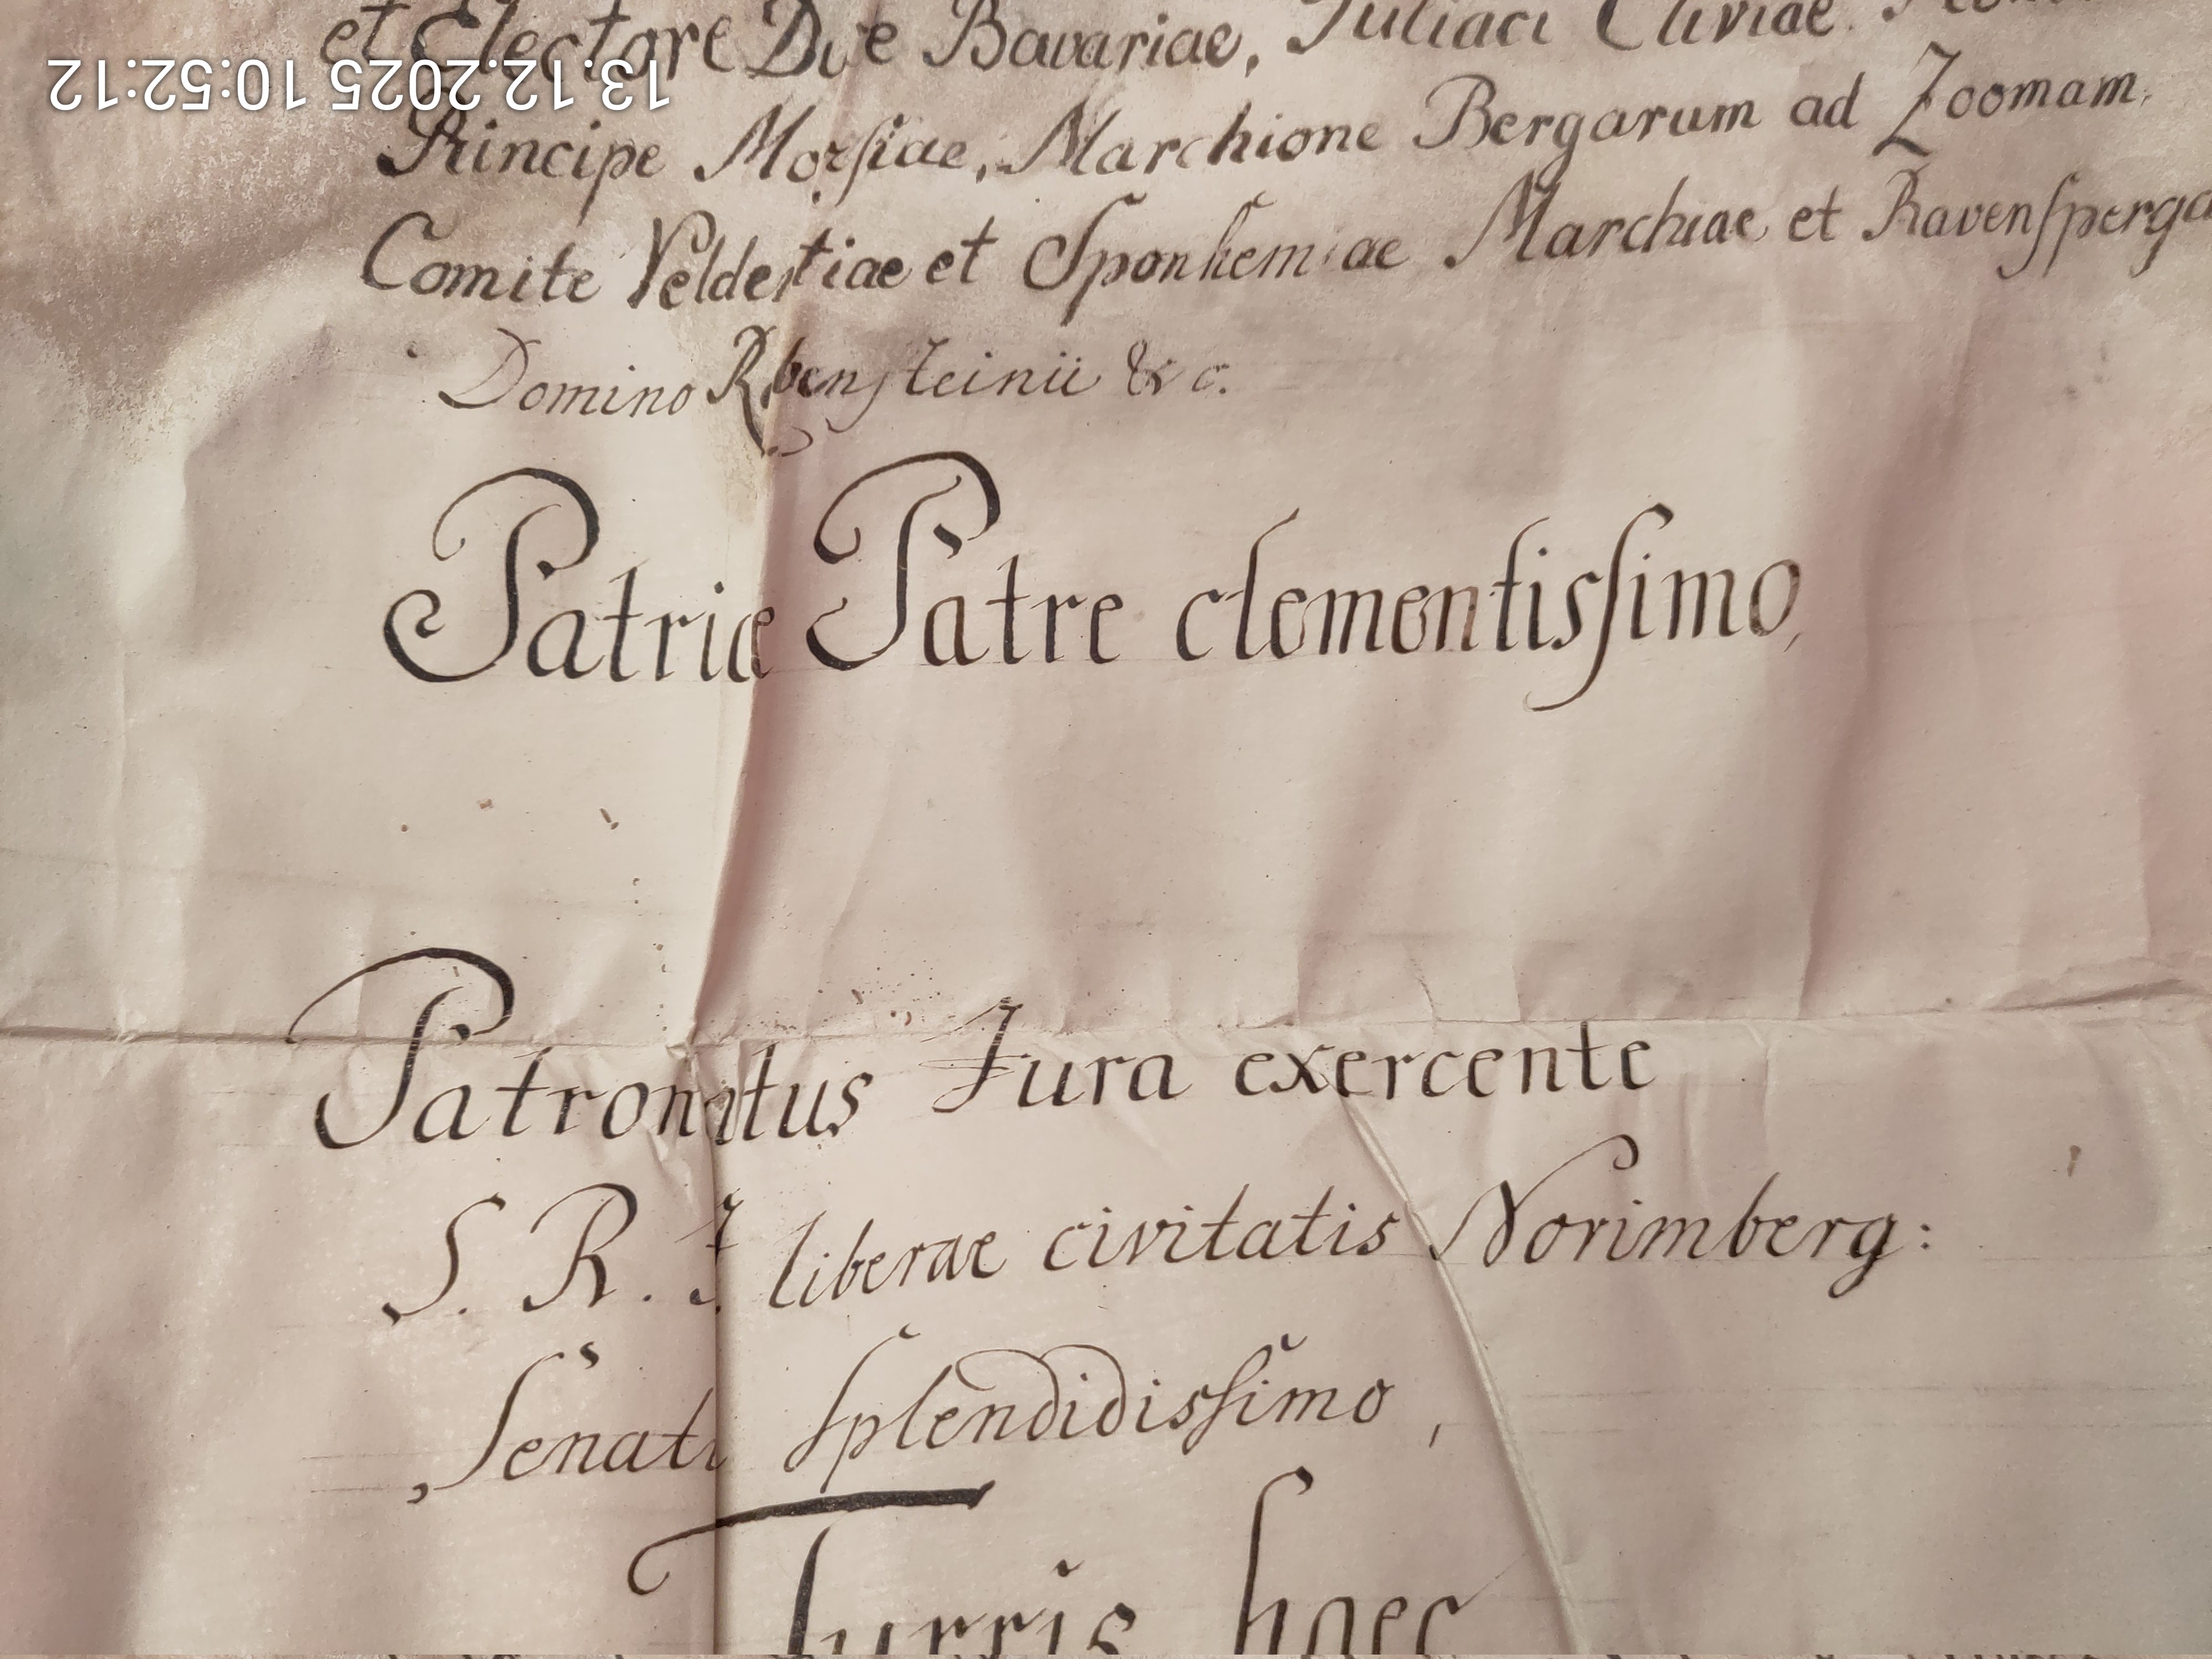 13.12.2025 10:52:12
et Electore Duce Bavariae, Juliaci Cliviae
Principe Morsiae, Marchione Bergarum ad Zoomam,
Comite Veldentiae et Sponhemiae Marchiae et Ravensperga
Domino Rabensteinii & c.
Patriae Patre clementissimo,
Patronatus Jura exercente
S. R. I liberae civitatis Norimberg:
Senatu Splendidissimo,
Turris haec